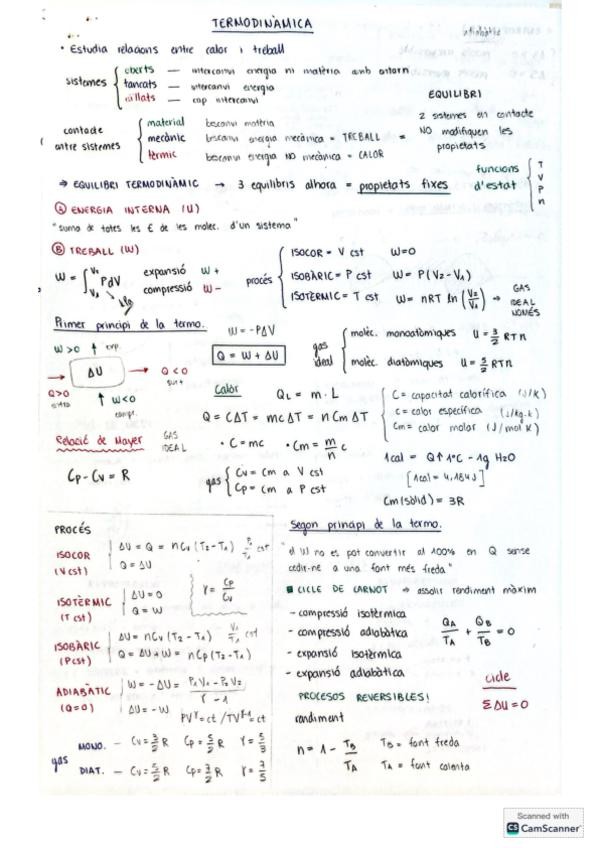 TERMODINÀMICA
• Estudia relacions entre calor i treball
sistemes
oberts — intercanvi energia ni matèria amb entorn
tancats — intercanvi energia
aïllats — cap intercanvi
EQUILIBRI
2 sistemes en contacte
NO modifiquen les
propietats
contacte
entre sistemes
material bescanvi matèria
mecànic bescanvi energia mecànica = TREBALL =
tèrmic bescanvi energia NO mecànica = CALOR
funcions
d'estat
T
V
P
n
⇒ EQUILIBRI TERMODINÀMIC → 3 equilibris alhora = propietats fixes
Ⓐ ENERGIA INTERNA (U)
"suma de totes les E de les molec. d'un sistema"
Ⓑ TREBALL (W)
W = ∫ V1 V2 PdV
expansió W +
compressió W -
procés
ISOCOR = V cst W=0
ISOBÀRIC = P cst W = P(V2-V1)
ISOTÈRMIC = T cst W = nRT ln (V2/V1) → GAS IDEAL NOMÉS
Primer principi de la termo.
W = -PΔV
Q = W + ΔU
gas
ideal
molèc. monoatòmiques U = 3/2 RTn
molèc. diatòmiques U = 5/2 RTn
W>0 ↑ exp.
ΔU
Q<0
surt
Q>0
entra
↑ W<0
compr.
Calor
QL = m · L
Q = CΔT = mcΔT = nCmΔT
• C = mc • Cm = m/n c
C = capacitat calorífica (J/K)
c = calor específica (J/kg·k)
Cm = calor molar (J/mol K)
Relació de Mayer
GAS
IDEAL
Cp - Cv = R
gas
Cv = cm a V cst
Cp = cm a P cst
1cal = Q↑1°C - 1g H2O
[1cal = 4,184J]
Cm(sòlid) = 3R
PROCÉS
ISOCOR
(V cst)
ΔU = Q = nCv (T2-T1) P/T cst
Q = ΔU
ISOTÈRMIC
(T cst)
ΔU = 0
Q = W
γ = Cp/Cv
ISOBÀRIC
(P cst)
ΔU = nCv (T2-T1) V/T cst
Q = ΔU + W = nCp (T2-T1)
ADIABÀTIC
(Q=0)
W = -ΔU = P1V1 - P2V2 / γ - 1
ΔU = -W
PVγ = ct / TVγ-1 = ct
gas
MONO. - Cv = 3/2 R Cp = 5/2 R γ = 5/3
DIAT. - Cv = 5/2 R Cp = 7/2 R γ = 7/5
Segon principi de la termo.
"el W no es pot convertir al 100% en Q sense
cedir-ne a una font més freda"
■ CICLE DE CARNOT ⇒ assolir rendiment màxim
- compressió isotèrmica
- compressió adiabàtica
- expansió isotèrmica
- expansió adiabàtica
QA/TA + QB/TB = 0
PROCESOS REVERSIBLES!
cicle
ΣΔU = 0
rendiment
n = 1 - TB/TA
TB = font freda
TA = font calenta
Scanned with
CS CamScanner